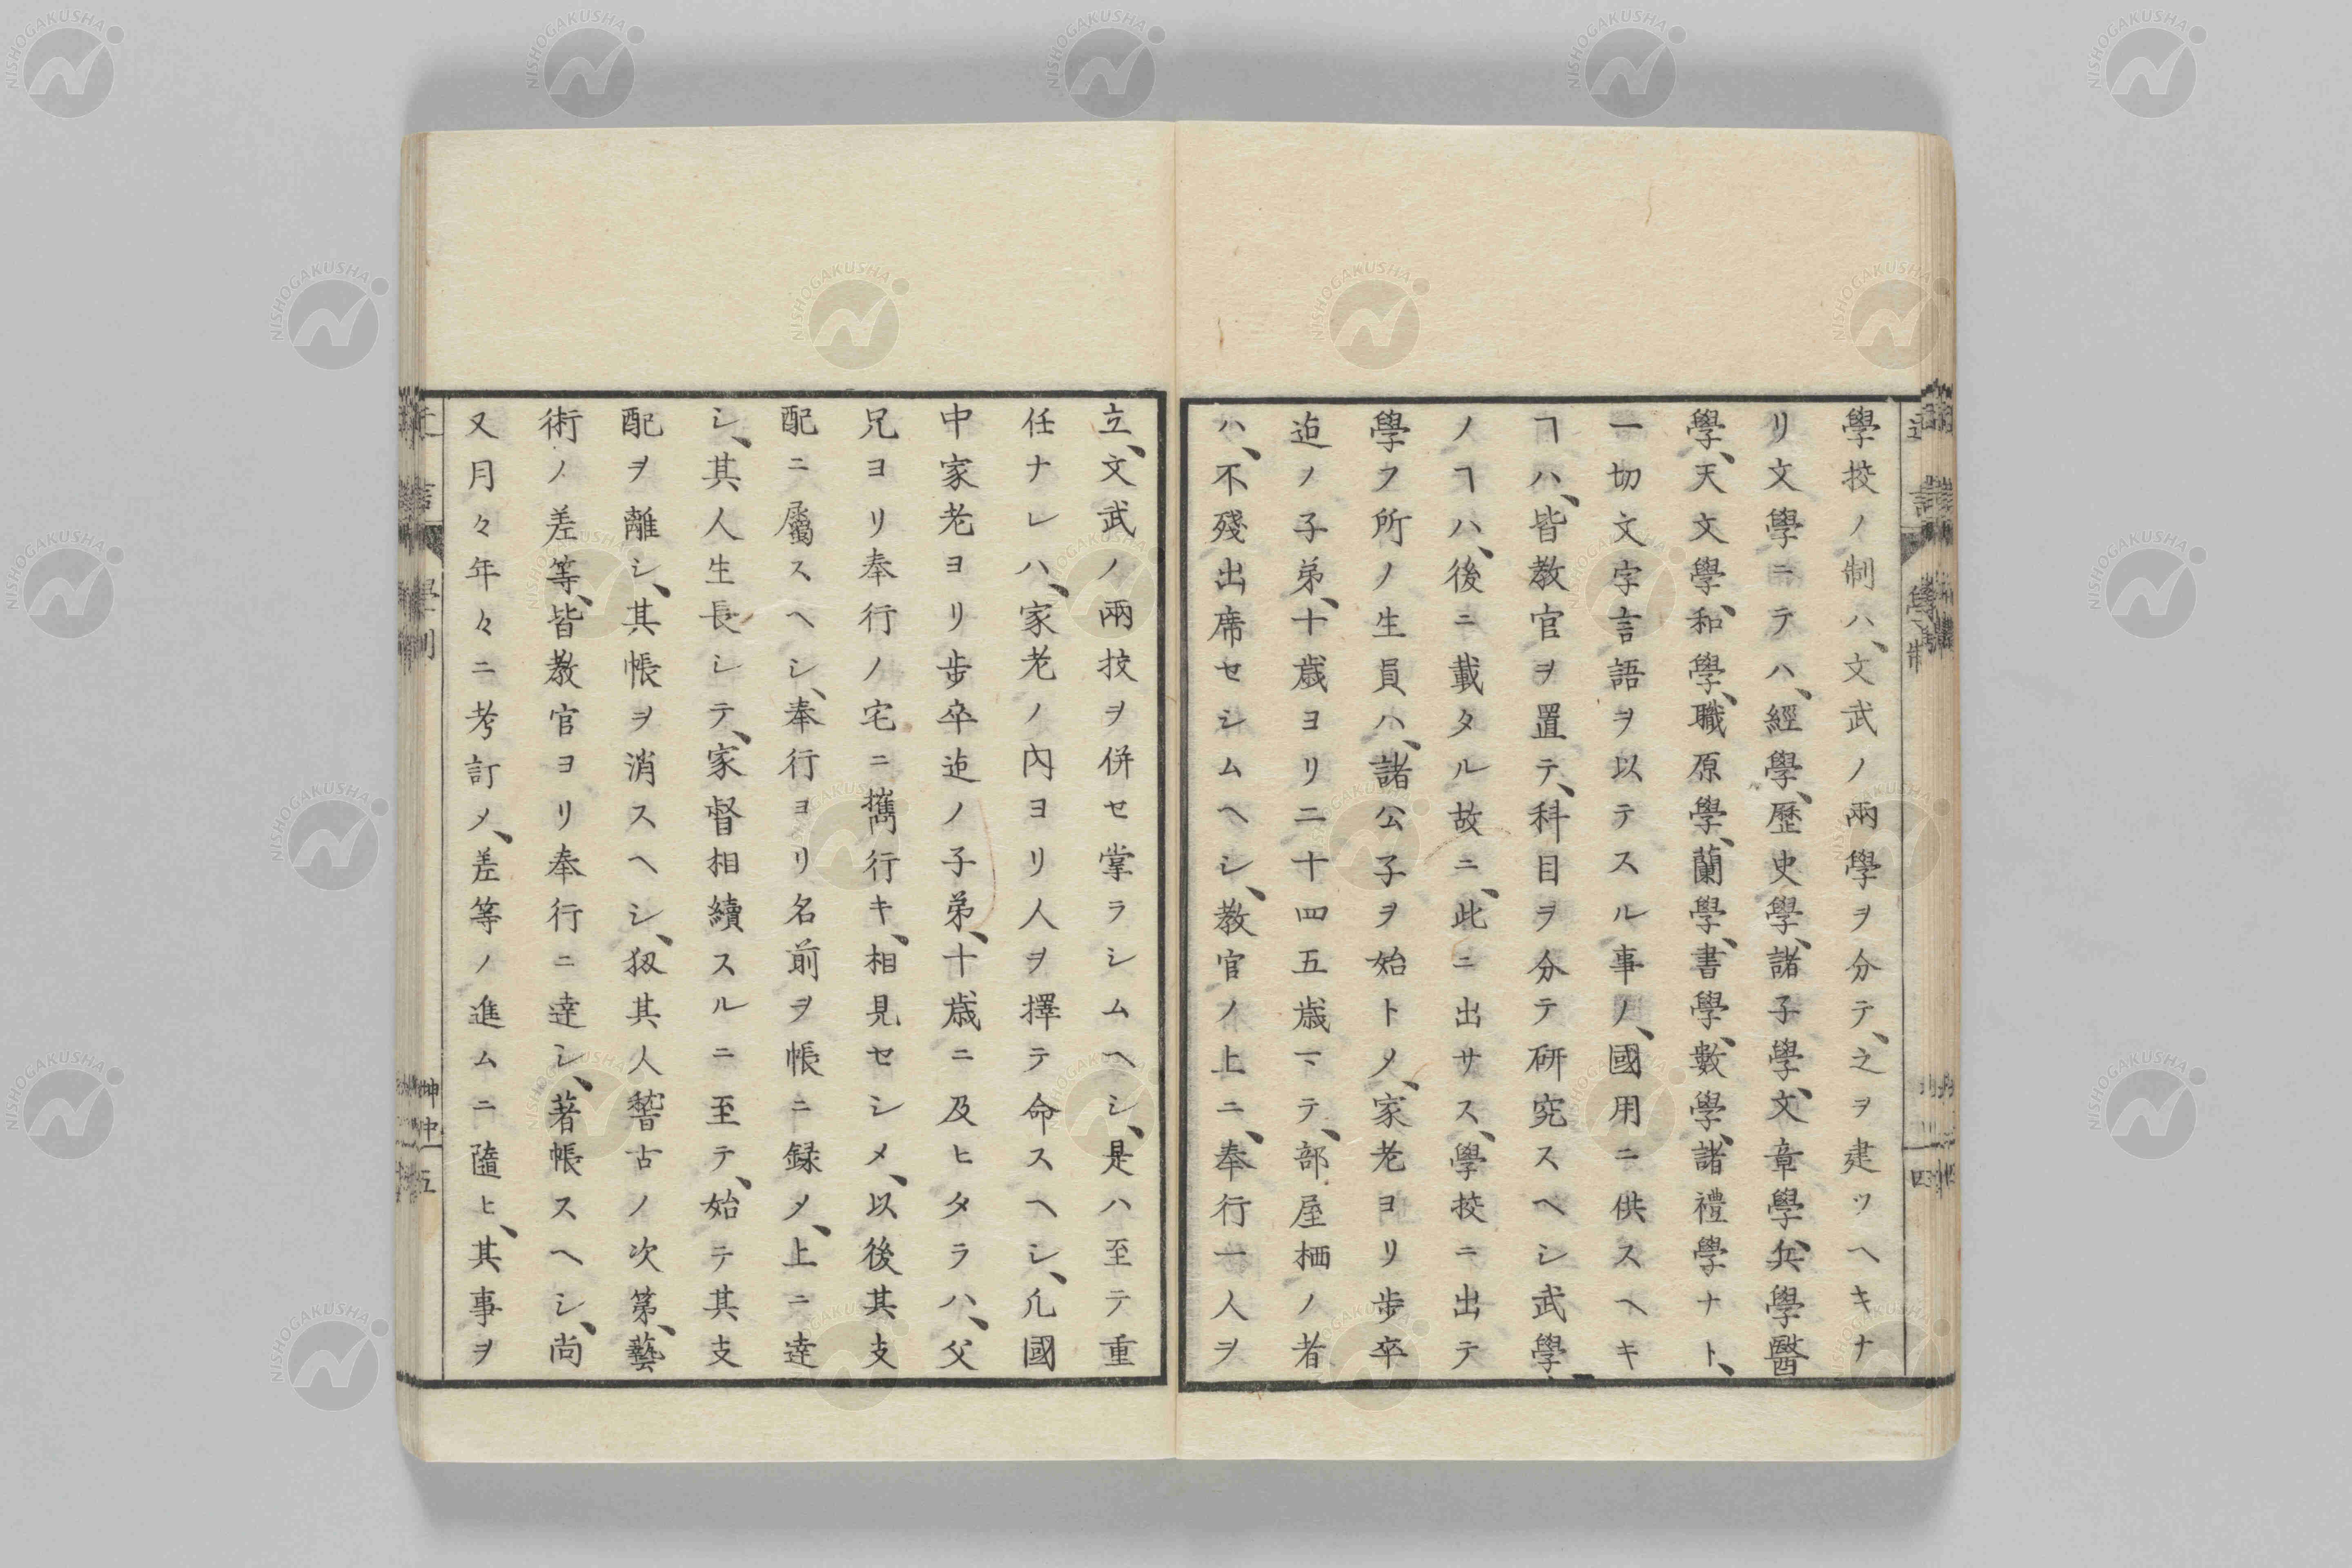 學挍ノ制ハ、文武ノ兩學ヲ分テ、之ヲ建ツヘキナ
リ文學ニテハ、經學、歷史學、諸子學、文章學、兵學醫
學、天文學、和學、職原學、蘭學、書學、數學、諸禮學ナト、
一切文字言語ヲ以テスル事ノ、國用ニ供スヘキ
ヿハ、皆教官ヲ置テ、科目ヲ分テ研究スヘシ武學
ノヿハ、後ニ載タル故ニ、此ニ出サス、學挍ニ出テ
學フ所ノ生員ハ、諸公子ヲ始トメ、家老ヨリ歩卒
迠ノ子弟、十歳ヨリ二十四五歳マテ、部屋栖ノ者
ハ、不殘出席セシムヘシ、教官ノ上ニ、奉行一人ヲ
立、文武ノ兩挍ヲ併セ掌ラシムヘシ、是ハ至テ重
任ナレハ、家老ノ内ヨリ人ヲ擇テ命スヘシ、凢國
中家老ヨリ歩卒迠ノ子弟、十歳ニ及ヒタラハ、父
兄ヨリ奉行ノ宅ニ携行キ、相見セシメ、以後其支
配ニ屬スヘシ、奉行ヨリ名前ヲ帳ニ録メ、上ニ達
シ、其人生長シテ、家督相續スルニ至テ、始テ其支
配ヲ離シ、其帳ヲ消スヘシ、扨其人稽古ノ次第、藝
術ノ差等、皆教官ヨリ奉行ニ達シ、著帳スヘシ、尚
又月々年々ニ考訂メ、差等ノ進ムニ隨ヒ、其事ヲ
NISHOGAKUSHA